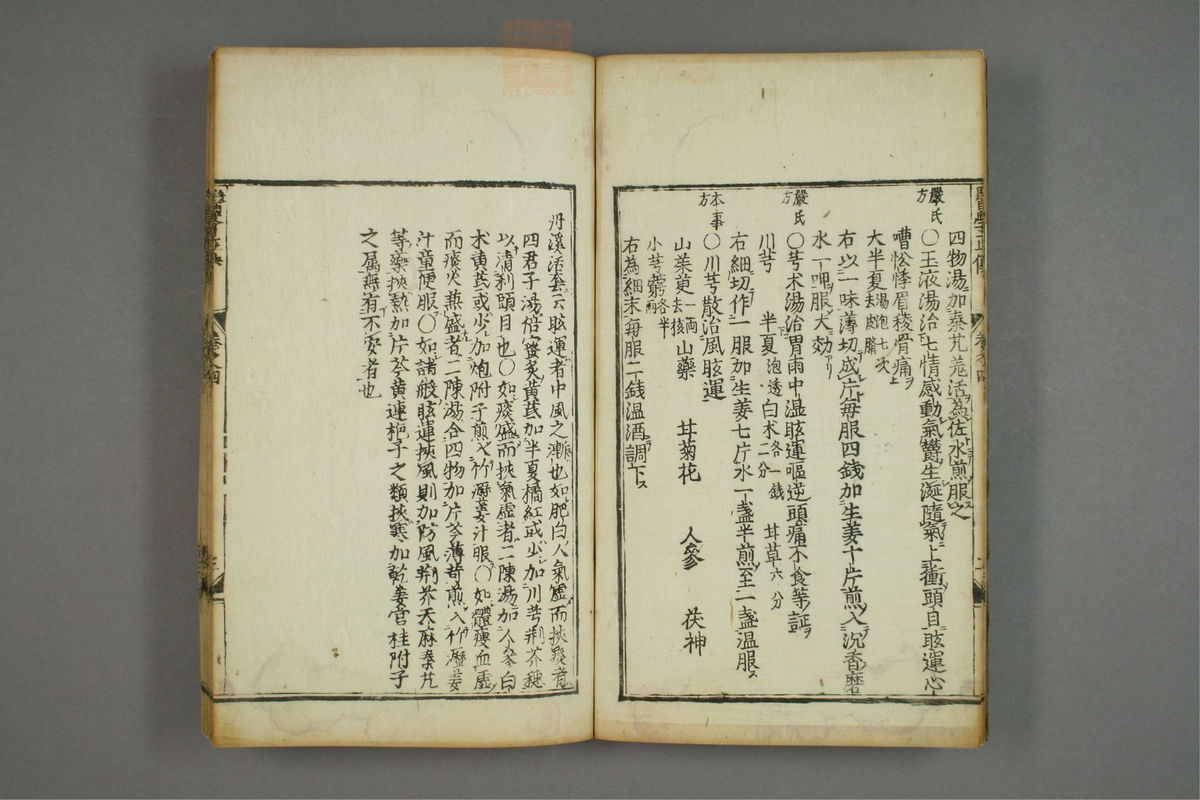 四物湯加秦艽羗活為佐水煎服之
嚴氏方
○玉液湯治七情感動氣鬱生涎隨氣上衝頭目眩運心
嘈忪悸眉稜骨痛
大半夏湯泡七次去皮臍
右以一味薄切成片每服四錢加生姜十片煎入沉香磨
水一呷服大効
嚴氏方
○芎朮湯治胃雨中湿眩運嘔逆頭痛不食等証
川芎 半夏泡透 白朮各一錢二分 甘草六分
右細切作一服加生姜七片水一盞半煎至一盞温服
本事方
○川芎散治風眩運
山茱萸一兩去核 山藥 甘菊花 人參 茯神
小芎藭各半兩
右為細末每服二錢温酒調下
醫學正傳
卷之四
丹溪活套云眩運者中風之漸也如肥白人氣虚而挾痰者
四君子湯倍蜜炙黃芪加半夏橘紅或少加川芎荆芥穗
以清利頭目也○如痰盛而挾氣虚者二陳湯加人參白
朮黄芪或少加炮附子煎入竹瀝姜汁服○如體瘦血虚
而痰火𤍠盛者二陳湯合四物加片芩薄苛煎入竹瀝姜
汁童便服○如諸般眩運挾風則加防風荆芥天麻秦艽
等藥挾熱加片芩黄連梔子之類挾寒加乾姜官桂附子
之属無有不安者也